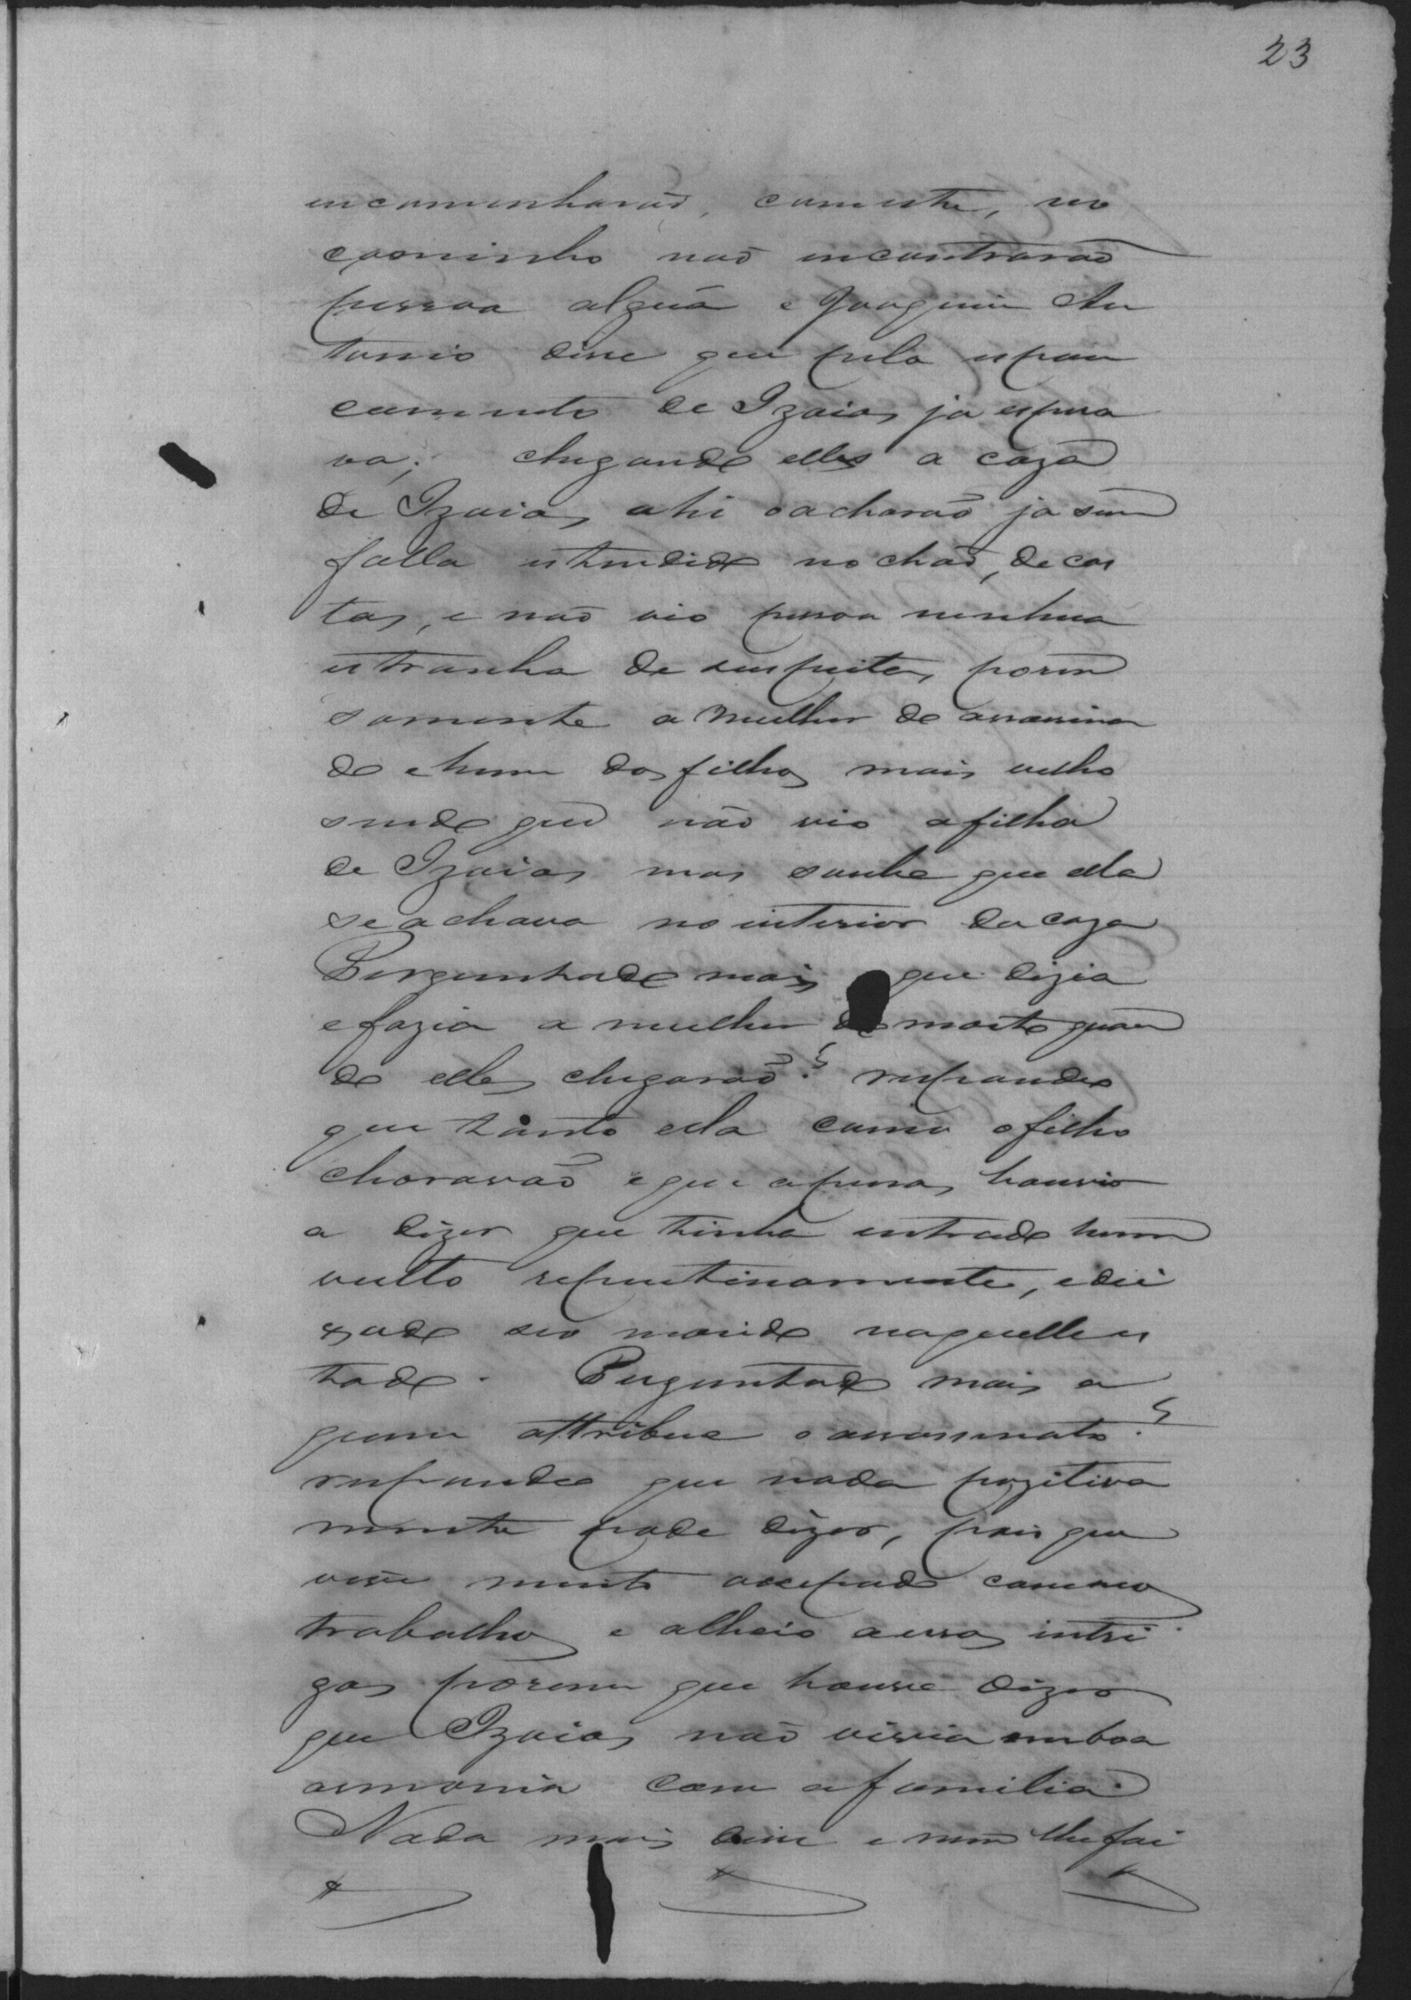 23
encaminharão, comeste, no
caminho não encontrarão
pessoa algúa e Joaquim An
tonio disse que pelo espan
camento de Izaias ja espera
va; chegando elles a caza
de Izaias ahi o acharão já sem
falla estendido no chão, de cos
tas, e não vio pessoa nenhua
estranha de suspeitas, porem
somente a mulher do assassina
do e hum dos filhos mais velho
sendo que não vio a filha
de Izaias mas soube que ella
se achava no interior da caza
Perguntado mais que dizia
e fazia a mulher do morto quan
do elles chegarão? respondeo
que tanto ella como o filho
choravão e que apenas houvio
a dizer que tinha entrado hum
vulto repentinamente, e dei
xado seo marido naquelle es
tado. Perguntado mais a
quem attribue o assassinato?
respondeo que nada pozitiva
mente pode dizer, pois que
vive muito occupado com seos
trabalhos e alheio a essas intri
gas porem que houve dizer
que Izaias não vivia em boa
armonia com a familia.
Nada mais disse e nem lhe foi